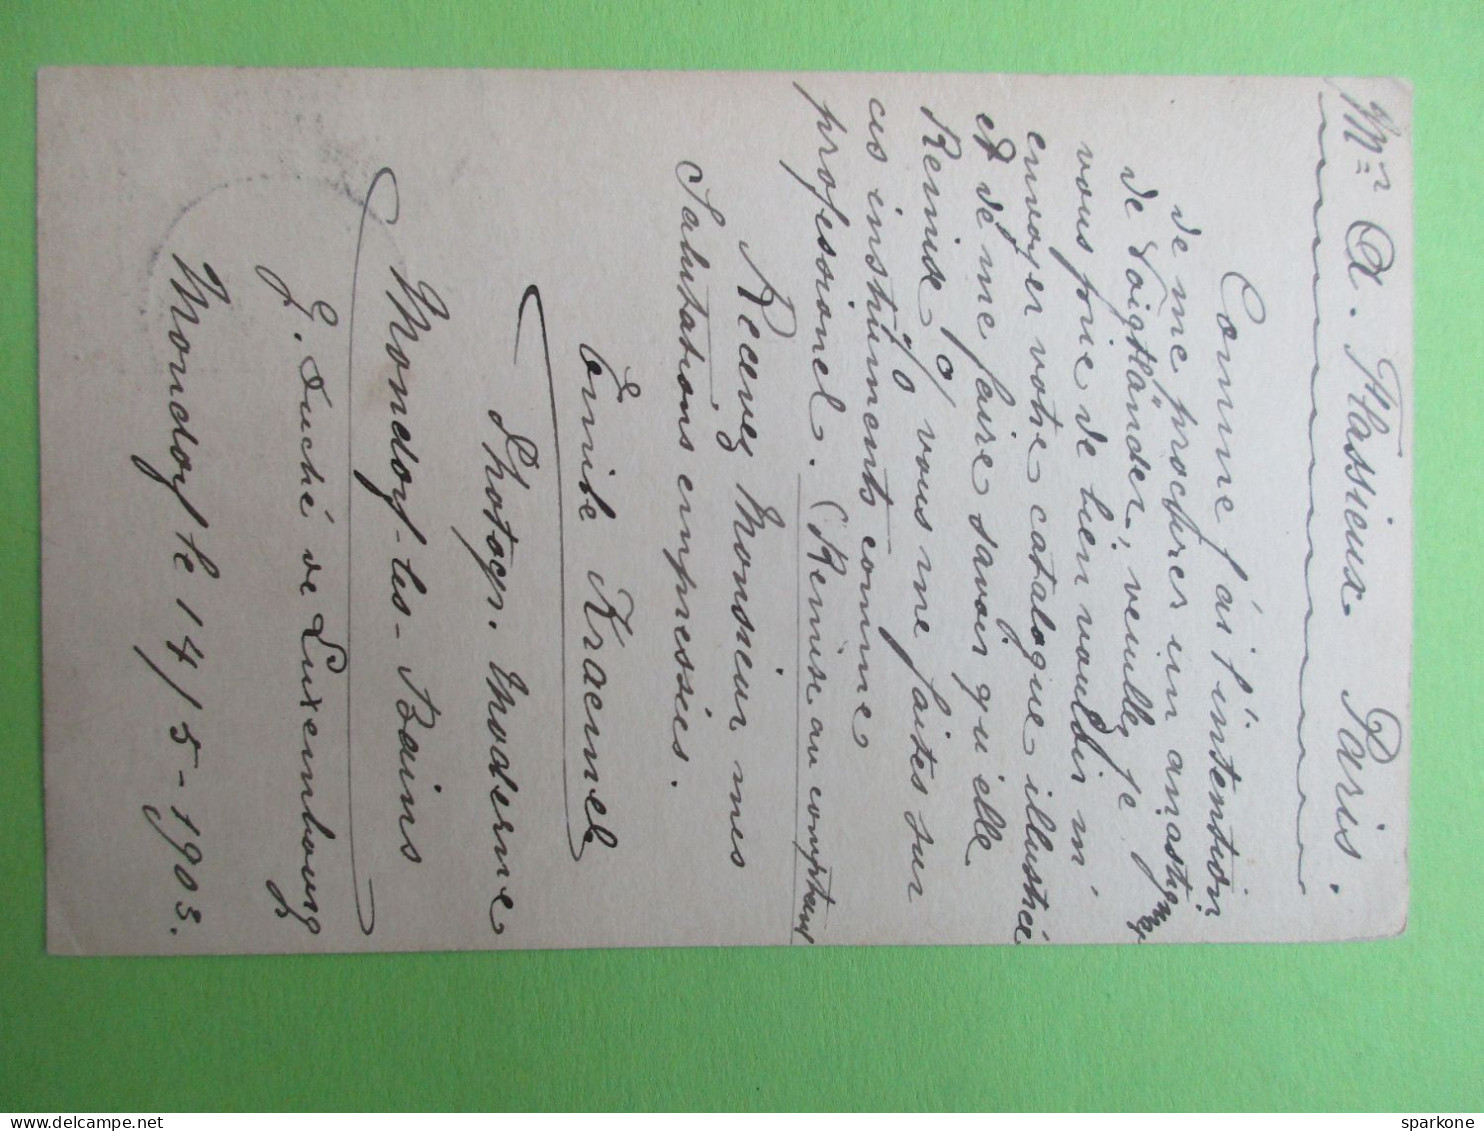 Mr A. Plassieux Paris.
Comme j'ais l'intention
de me procurer un anastigmat
de Voigtländer, veuillez je
vous prie de bien vouloir m'
envoyer votre catalogue illustrée
et de me faire savoir qu'elle
Remise % vous me faites sur
ces instruments comme
professionel. (Remise au comptant
Recevez Monsieur mes
Salutations empressées.
Emile Kraemer
Photogr. moderne
Mondorf-les-Bains
G. Duché de Luxembourg
Mondorf le 14/5-1903.
sparkone